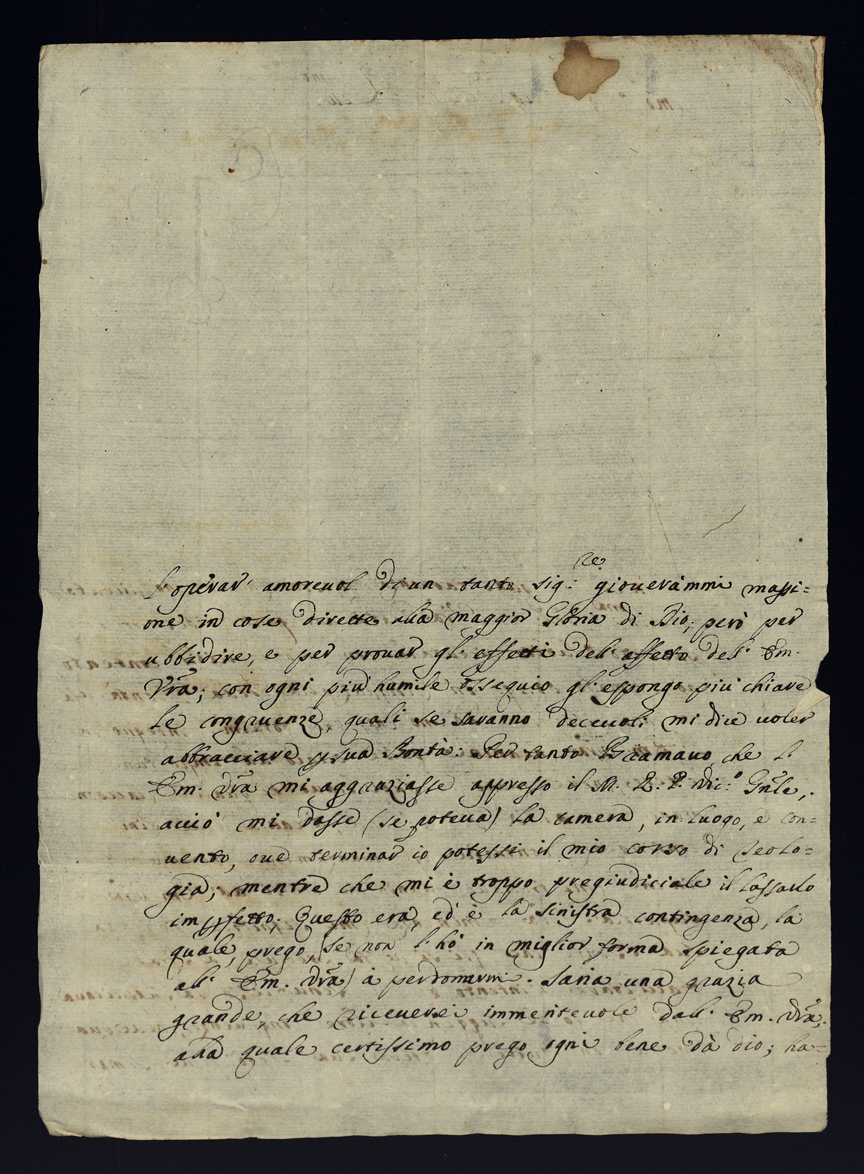 L'operar' amorevol di un tanto Sig:re gioverammi massi=
one in cose dirette alla maggior Gloria di Dio; però per
ubbidire, e per provar gl' effetti del' affetto del' Em.
Vrã; con ogni più humile ossequio gl' espongo più chiare
le congruenze, quali se saranno decevoli mi dice voler
abbracciare p sua Bontà: Per tanto Bramavo, che l'
Em. Vrã mi aggraziasse appresso il M. R. P. Vic:o Gnle,
acciò mi dasse (se poteva) la camera, in luogo, e con=
vento, ove terminar io potessi il mio corso di Teolo=
gia; mentre che mi è troppo pregiudiciale il lassarlo
impfetto; Questo era, ed è la sinistra contingenza, la
quale, prego, (se non l'hò in miglior forma spiegata
al' Em. Vrã) à perdonarmi. Saria una grazia
grande, che riceverei immeritevole dall' Em. Vrã,
alla quale certissimo prego ogni bene dà Dio; ha=